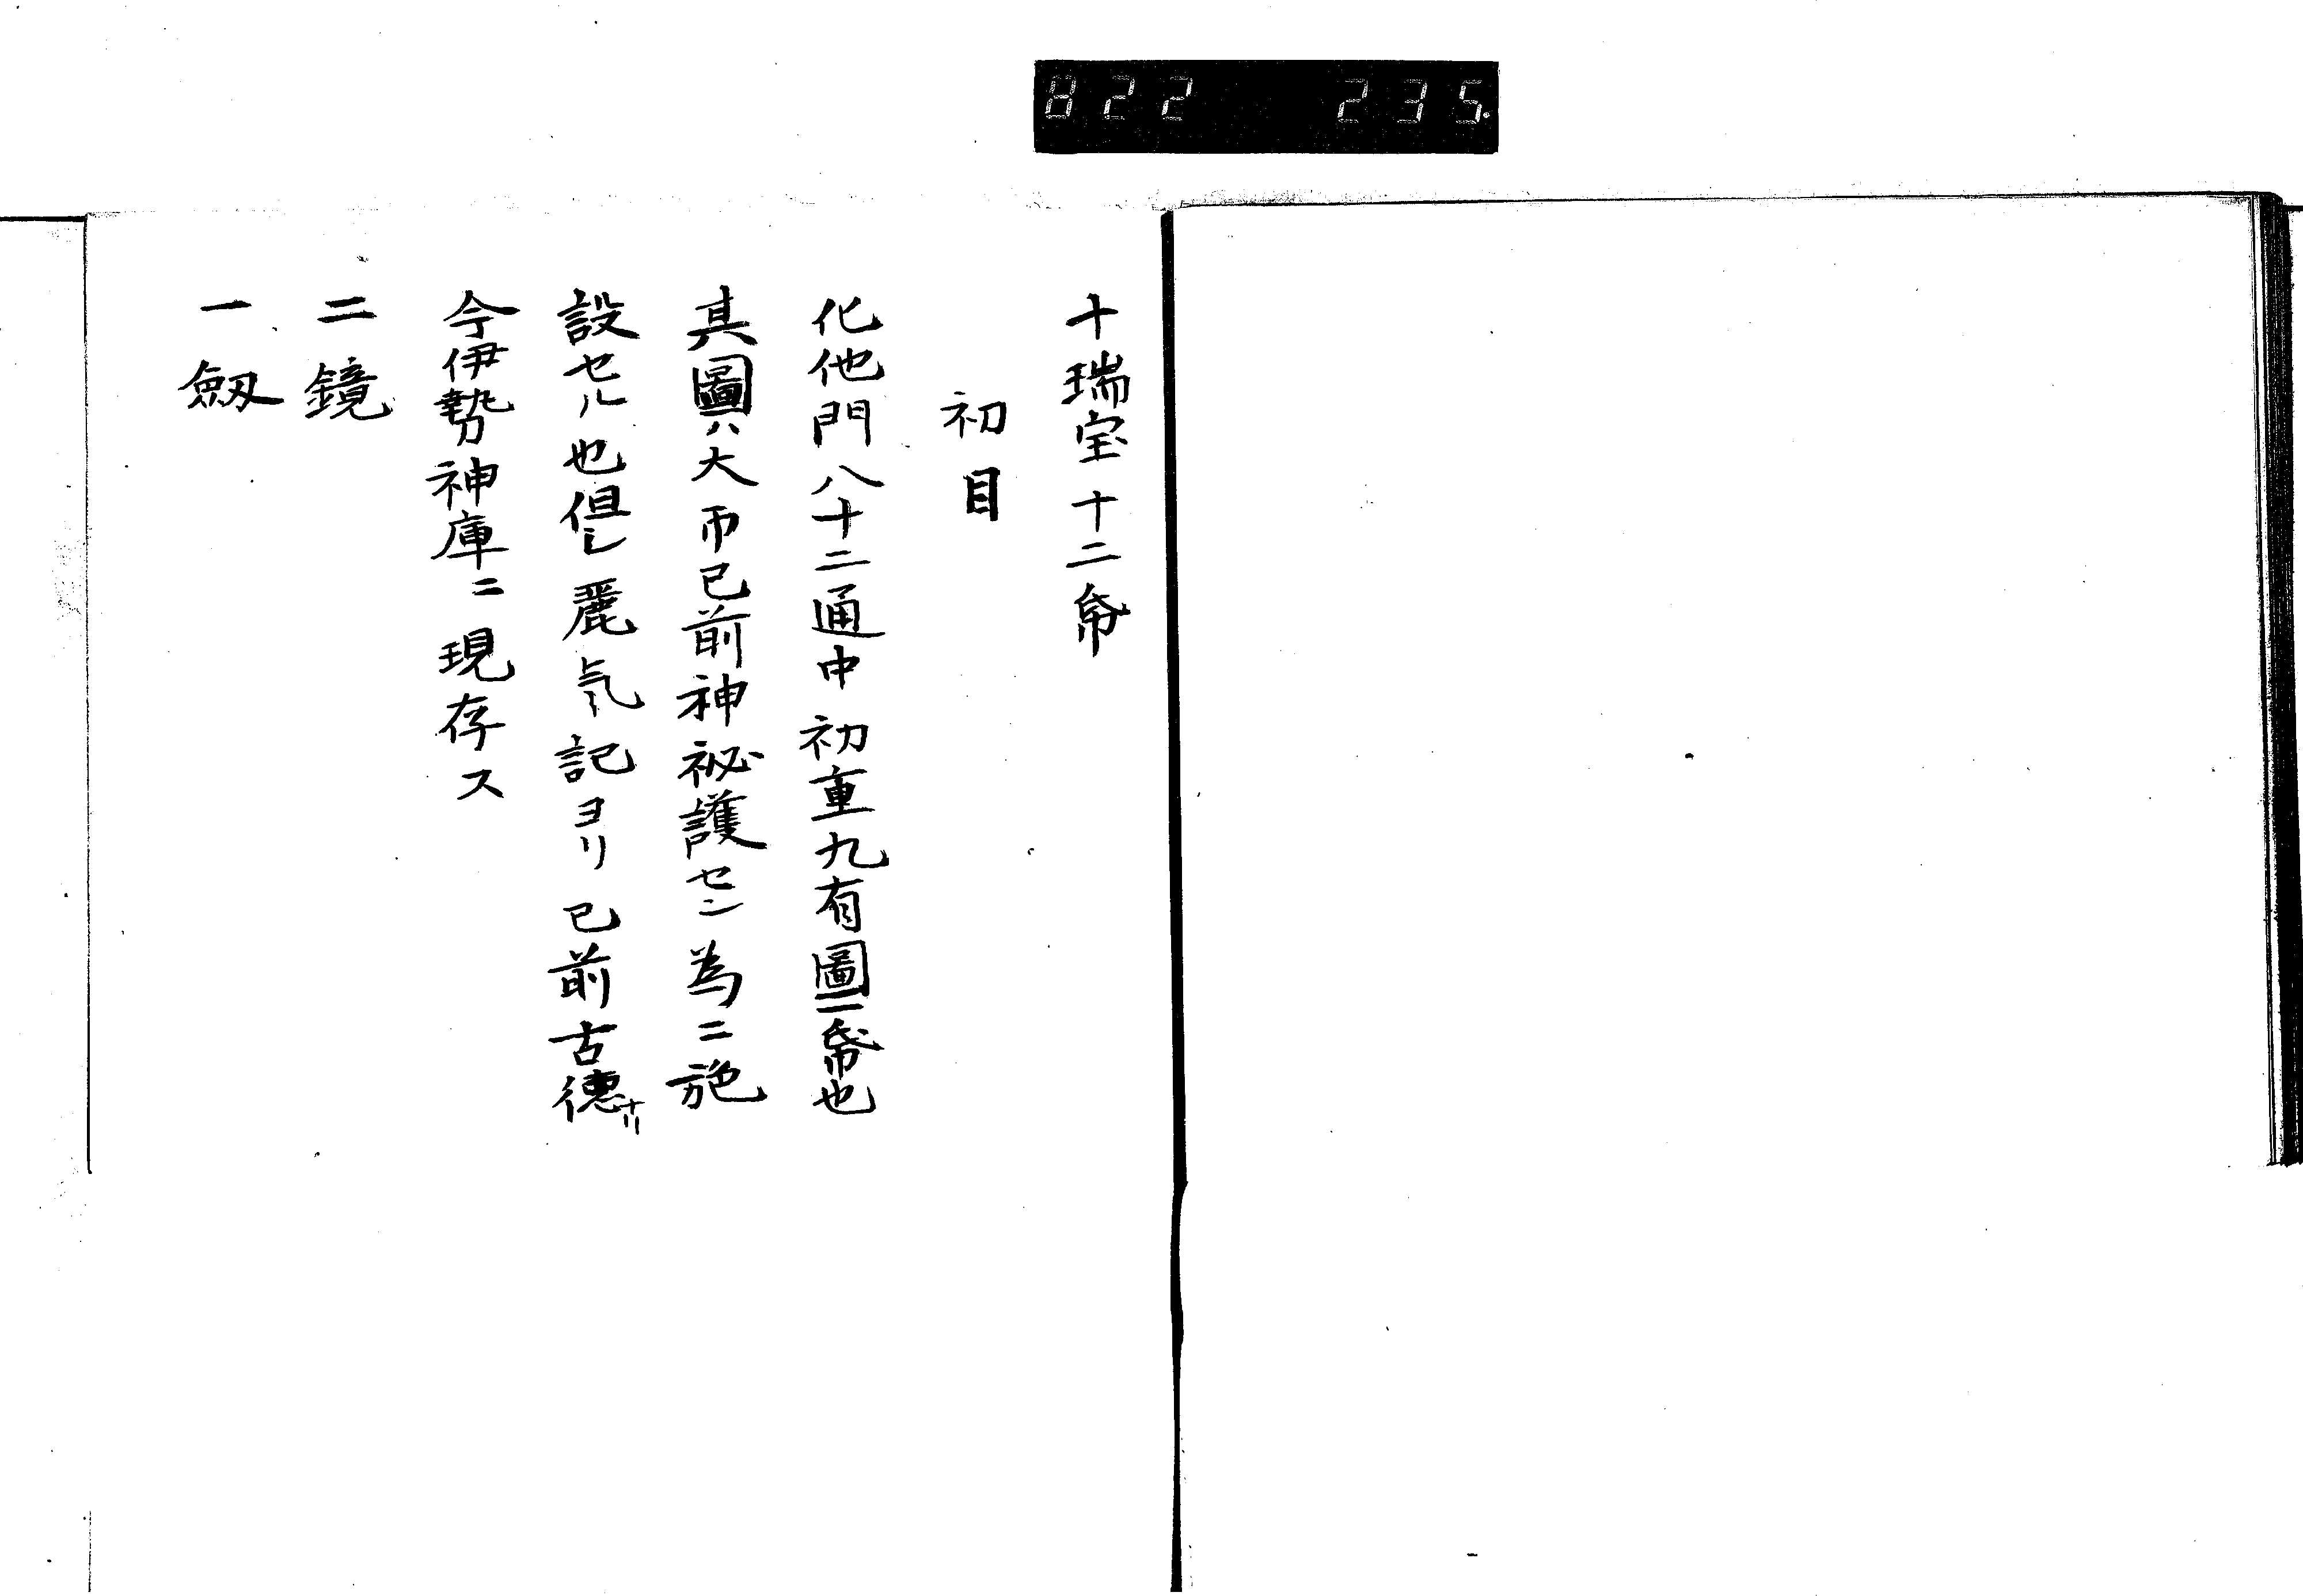 822 235
十瑞宝十二帋
初目
化他門八十二通中初重九有圖一帋也
其圖ハ大帀已前神祕護センニ為ニ施
設セル也但シ麗気記ヨリ已前古德ナリ
今伊勢神庫ニ現存ス
二鏡
一劔